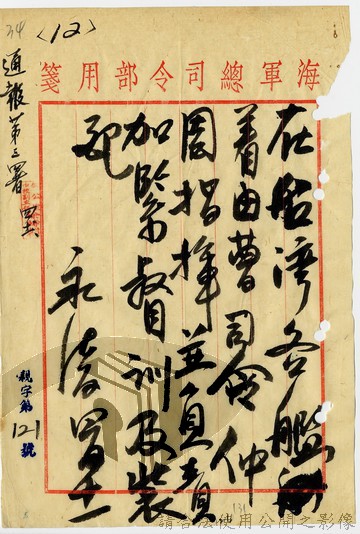 <12>
34
海軍總司令部用箋
在台灣各艦艇
着由曹司令仲
周指揮並負責
加緊督訓及裝
配
永清
通報第三署
親字第121號
131
請合法使用公開之影像